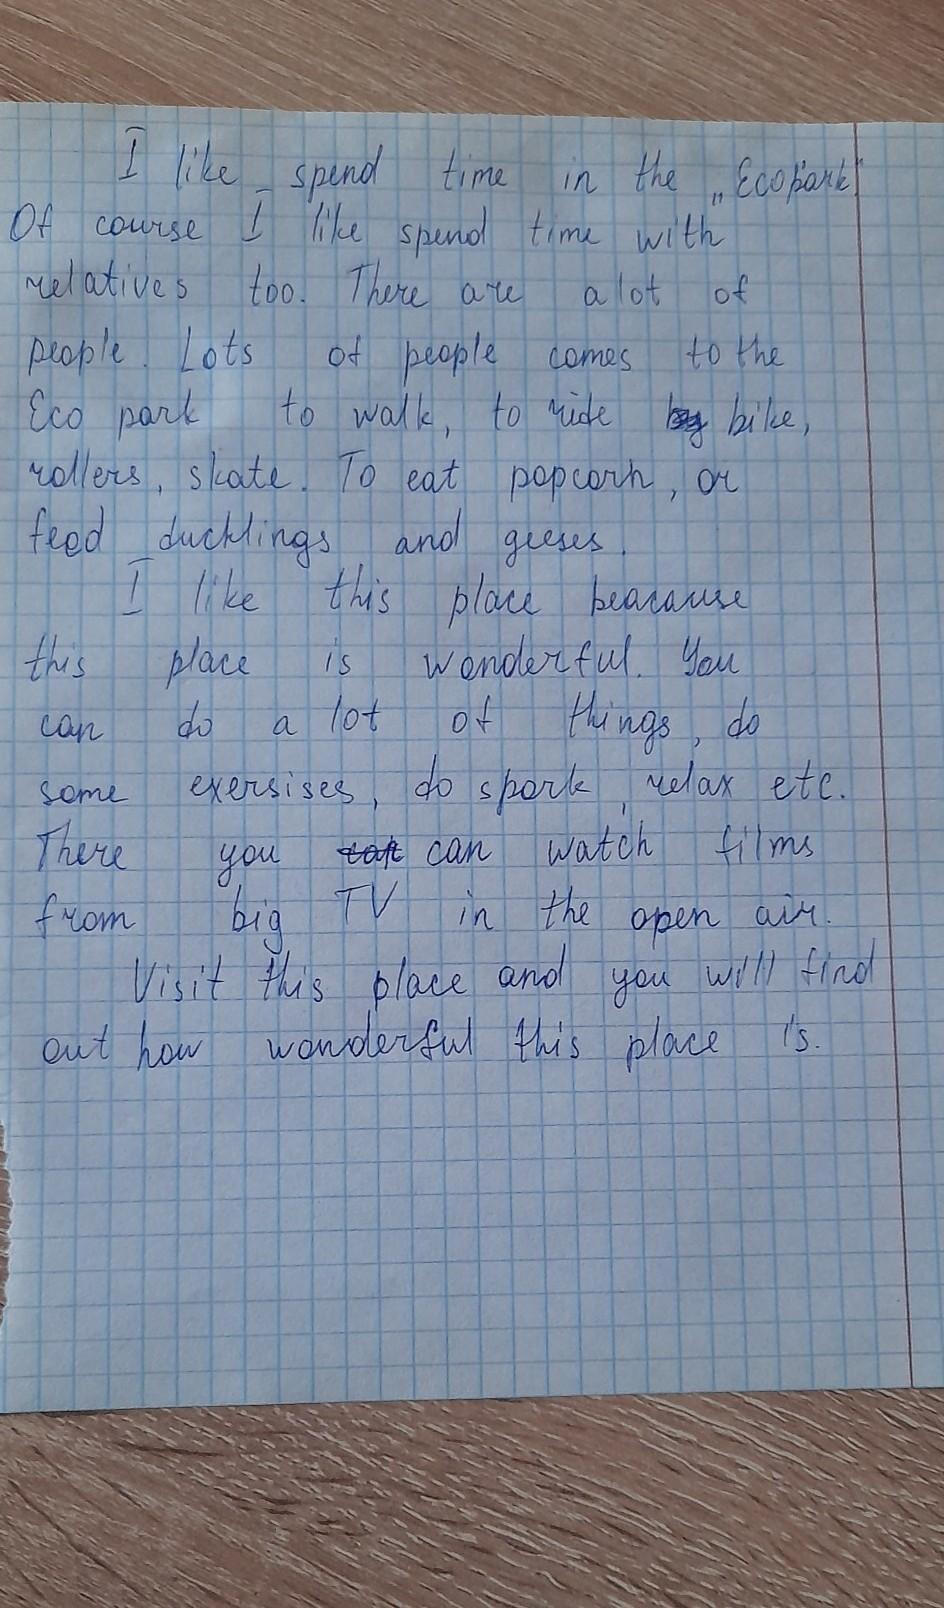 I like spend time in the „Ecopark"
Of course I like spend time with
relatives too. There are alot of
people. Lots of people comes to the
Eco park to walk, to ride bike,
rollers, skate. To eat popcorn, or
feed ducklings and geeses.
I like this place beacause
this place is wonderful. You
can do a lot of things, do
some exersises, do spork, relax etc.
There you can watch films
from big TV in the open air.
Visit this place and you will find
out how wonderful this place is.